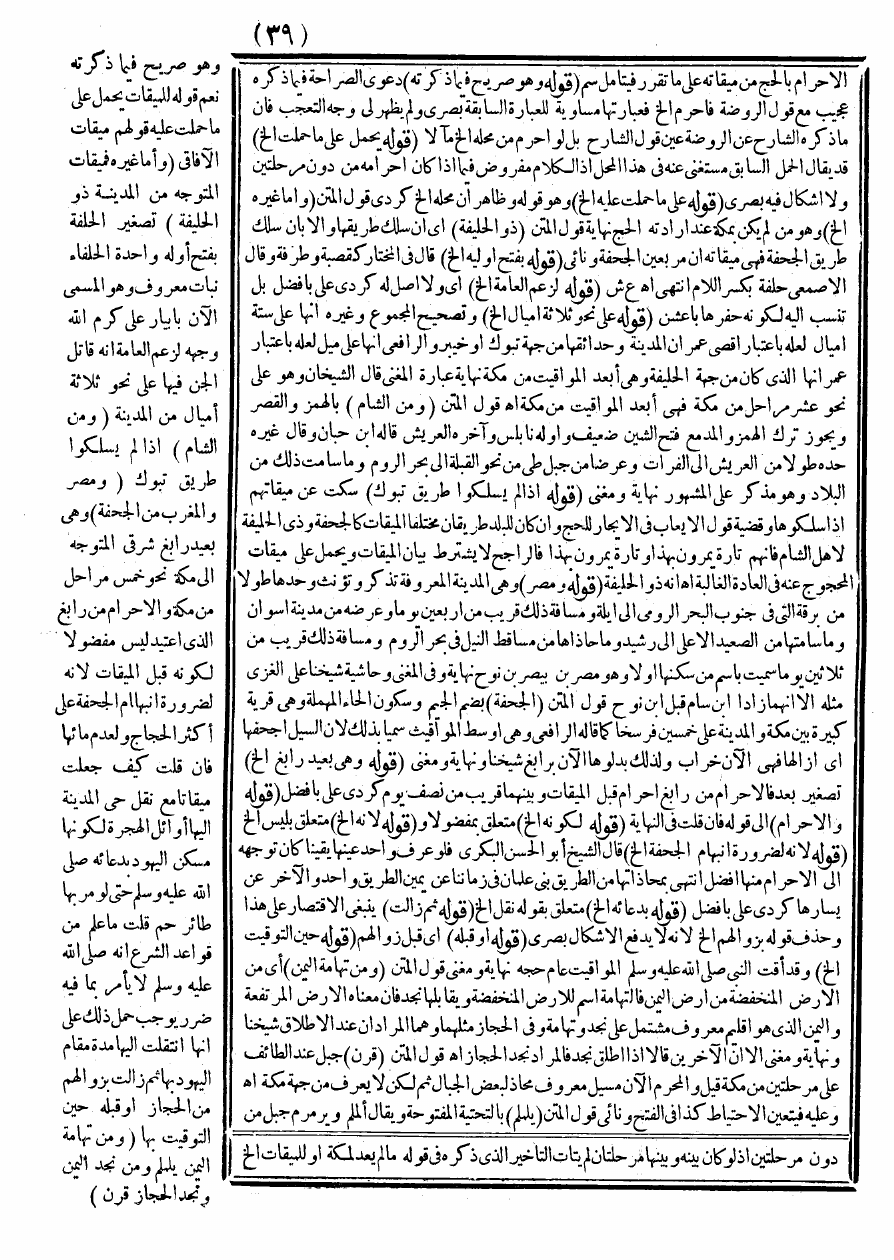 (٣٩)
الاحرام بالحج من ميقاته على ما تقرر فيتامل سم (قوله وهو صريح فيما ذكرته) دعوى الصراحة فيما ذكره
عجيب مع قول الروضة فاحرم الخ فعبارتها مساوية للعبارة السابقة بصرى ولم يظهر لى وجه التعجب فان
ما ذكره الشارح عن الروضة عين قول الشارح بل لو احرم من محله الخ مآلا (قوله يحمل على ما حملت الخ)
قد يقال الحمل السابق مستغنى عنه فى هذا المحل اذ الكلام مفروض فيما اذا كان احرامه من دون مرحلتين
ولا اشكال فيه بصرى (قوله على ما حملت عليه الخ) وهو قوله وظاهر أن محله الخ كردى قول المتن (واما غيره
الخ) وهو من لم يكن بمكة عند ارادته الحج نهاية قول المتن (ذو الحليفة) اى ان سلك طريقها والا بان سلك
طريق الجحفة فهى ميقاته ان مر بعين الجحفة ونائى (قوله بفتح اوليه الخ) قال فى المختار كقصبة وطرفة وقال
الاصمعى حلفة بكسر اللام انتهى اه ع ش (قوله لزعم العامة الخ) اى ولا اصل له كردى على بافضل بل
تنسب اليه لكونه حفرها باعشن (قوله على نحو ثلاثة اميال الخ) وتصحيح المجموع وغيره انها على ستة
اميال لعله باعتبار اقصى عمران المدينة وحدائقها من جهة تبوك او خيبر والرافعى انها على ميل لعله باعتبار
عمرانها الذى كان من جهة الحليفة وهى أبعد المواقيت من مكة نهاية عبارة المغنى قال الشيخان وهو على
نحو عشر مراحل من مكة فهى أبعد المواقيت من مكة اه قول المتن (ومن الشام) بالهمز والقصر
ويجوز ترك الهمز والمد مع فتح الشين ضعيف واوله نابلس وآخره العريش قاله ابن حبان وقال غيره
حده طولا من العريش الى الفرات وعرضا من جبل طى من نحو القبلة الى بحر الروم وما سامت ذلك من
البلاد وهو مذكر على المشهور نهاية ومغنى (قوله اذا لم يسلكوا طريق تبوك) سكت عن ميقاتهم
اذا سلكوها وقضية قول الايعاب فى الايجار للحج وان كان للبلد طريقان مختلفا الميقات كالجحفة وذى الحليفة
لاهل الشام فانهم تارة يمرون بهذا وتارة يمرون بهذا فالراجح لا يشترط بيان الميقات ويحمل على ميقات
المحجوج عنه فى العادة الغالبة اه انه ذو الحليفة (قوله ومصر) وهى المدينة المعروفة تذكر وتؤنث وحدها طولا
من برقة التى فى جنوب البحر الرومى الى ايلة ومسافة ذلك قريب من اربعين يوما وعرضه من مدينة اسوان
وما سامتها من الصعيد الاعلى الى رشيد وما حاذاها من مساقط النيل فى بحر الروم ومسافة ذلك قريب من
ثلاثين يوما سميت باسم من سكنها اولا وهو مصر بن بيصر بن نوح نهاية وفى المغنى وحاشية شيخنا على الغزى
مثله الا انهما زادا ابن سام قبل ابن نوح قول المتن (الجحفة) بضم الجيم وسكون الحاء المهملة وهى قرية
كبيرة بين مكة والمدينة على خمسين فرسخا كما قاله الرافعى وهى اوسط المواقيت سميا بذلك لان السيل اجحفها
اى ازالها فهى الآن خراب ولذلك بدلوها الآن برابغ شيخنا ونهاية ومغنى (قوله وهى بعيد رابغ الخ)
تصغير بعد فالاحرام من رابغ احرام قبل الميقات وبينهما قريب من نصف يوم كردى على بافضل (قوله
والاحرام) الى قوله فان قلت فى النهاية (قوله لكونه الخ) متعلق بمفضولا و (قوله لانه الخ) متعلق بليس الخ
(قوله لانه لضرورة انبهام الجحفة الخ) قال الشيخ أبو الحسن البكرى فلو عرف واحد عينها يقينا كان توجهه
الى الاحرام منها افضل انتهى بمحاذاتها من الطريق بنى علمان فى زماننا عن يمين الطريق واحد والآخر عن
يسارها كردى على بافضل (قوله بدعائه الخ) متعلق بقوله نقل الخ (قوله ثم زالت) ينبغى الاقتصار على هذا
وحذف قوله بزوالهم الخ لانه لا يدفع الاشكال بصرى (قوله او قبله) اى قبل زوالهم (قوله حين التوقيت
الخ) وقد أقت النبى صلى الله عليه وسلم المواقيت عام حجه نهاية ومغنى قول المتن (ومن تهامة اليمن) أى من
الارض المنخفضة من ارض اليمن فالتهامة اسم للارض المنخفضة ويقابلها نجد فان معناه الارض المرتفعة
واليمن الذى هو اقليم معروف مشتمل على نجد وتهامة وفى الحجاز مثلهما وهما المرادان عند الاطلاق شيخنا
ونهاية ومغنى الا ان الآخرين قالا اذا اطلق نجد فالمراد نجد الحجاز اه قول المتن (قرن) جبل عند الطائف
على مرحلتين من مكة قيل والمحرم الآن مسيل معروف محاذ لبعض الجبال ثم لكن لا يعرف من جهة مكة اه
وعليه فيتعين الاحتياط كذا فى الفتح ونائى قول المتن (يلملم) بالتحتية المفتوحة ويقال ألملم ويرمرم جبل من
دون مرحلتين اذ لو كان بينه وبينها مرحلتان لم يتات التاخير الذى ذكره فى قوله ما لم يعد لمكة او للميقات الخ
وهو صريح فيما ذكرته
نعم قوله للميقات يحمل على
ما حملت عليه قولهم ميقات
الآفاقى (وأما غيره فميقات
المتوجه من المدينة ذو
الحليفة) تصغير الحلفة
بفتح أوله واحدة الحلفاء
نبات معروف وهو المسمى
الآن بابيار على كرم الله
وجهه لزعم العامة انه قاتل
الجن فيها على نحو ثلاثة
أميال من المدينة (ومن
الشام) اذا لم يسلكوا
طريق تبوك (ومصر
والمغرب من الجحفة) وهى
بعيد رابغ شرقى المتوجه
الى مكة نحو خمس مراحل
من مكة والاحرام من رابغ
الذى اعتيد ليس مفضولا
لكونه قبل الميقات لانه
لضرورة انبهام الجحفة على
أكثر الحجاج ولعدم مائها
فان قلت كيف جعلت
ميقاتا مع نقل حمى المدينة
اليها أوائل الهجرة لكونها
مسكن اليهود بدعائه صلى
الله عليه وسلم حتى لو مر بها
طائر حم قلت ما علم من
قواعد الشرع انه صلى الله
عليه وسلم لا يأمر بما فيه
ضرر يوجب حمل ذلك على
انها انتقلت اليها مدة مقام
اليهود بها ثم زالت بزوالهم
من الحجاز او قبله حين
التوقيت بها (ومن تهامة
اليمن يلملم ومن نجد اليمن
ونجد الحجاز قرن)